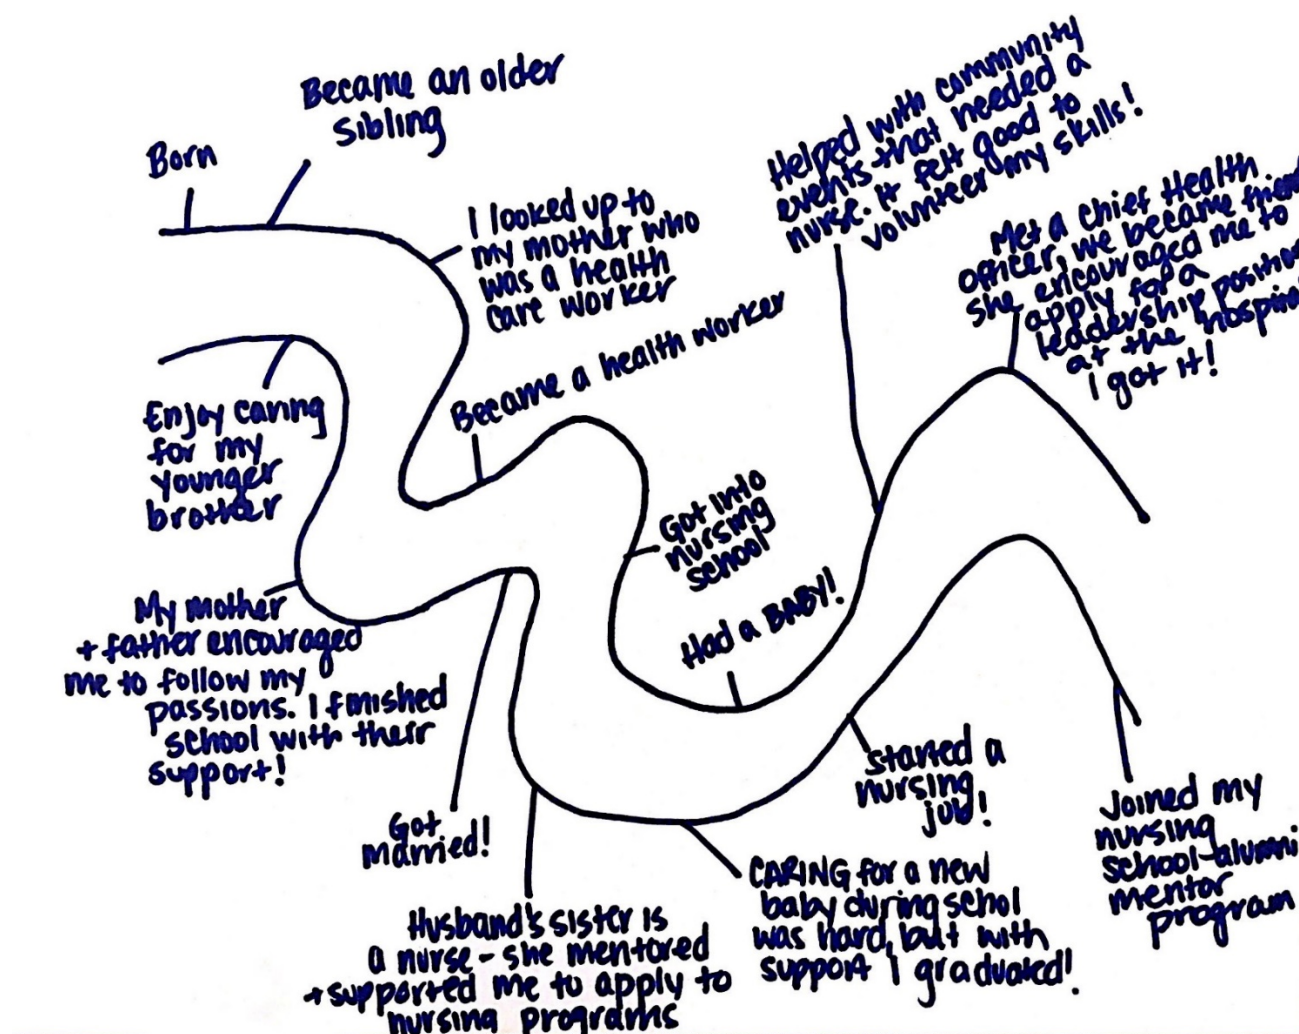 Born
Became an older
sibling
I looked up to
my mother who
was a health
care worker
Enjoy caring
for my
younger
brother
Became a health worker
My mother
+ father encouraged
me to follow my
passions. I finished
school with their
support!
Got
married!
Got into
nursing
school
Husband's sister is
a nurse - she mentored
+ supported me to apply to
nursing programs
Had a BABY!
CARING for a new
baby during schol
was hard, but with
support I graduated!
Started a
nursing
job!
Helped with community
events that needed a
nurse. It felt good to
volunteer my skills!
Met a Chief Health
officer, we became
she encouraged me to
apply for a
leadership
at the
I got it!
Joined my
nursing
school-alumni
mentor
program